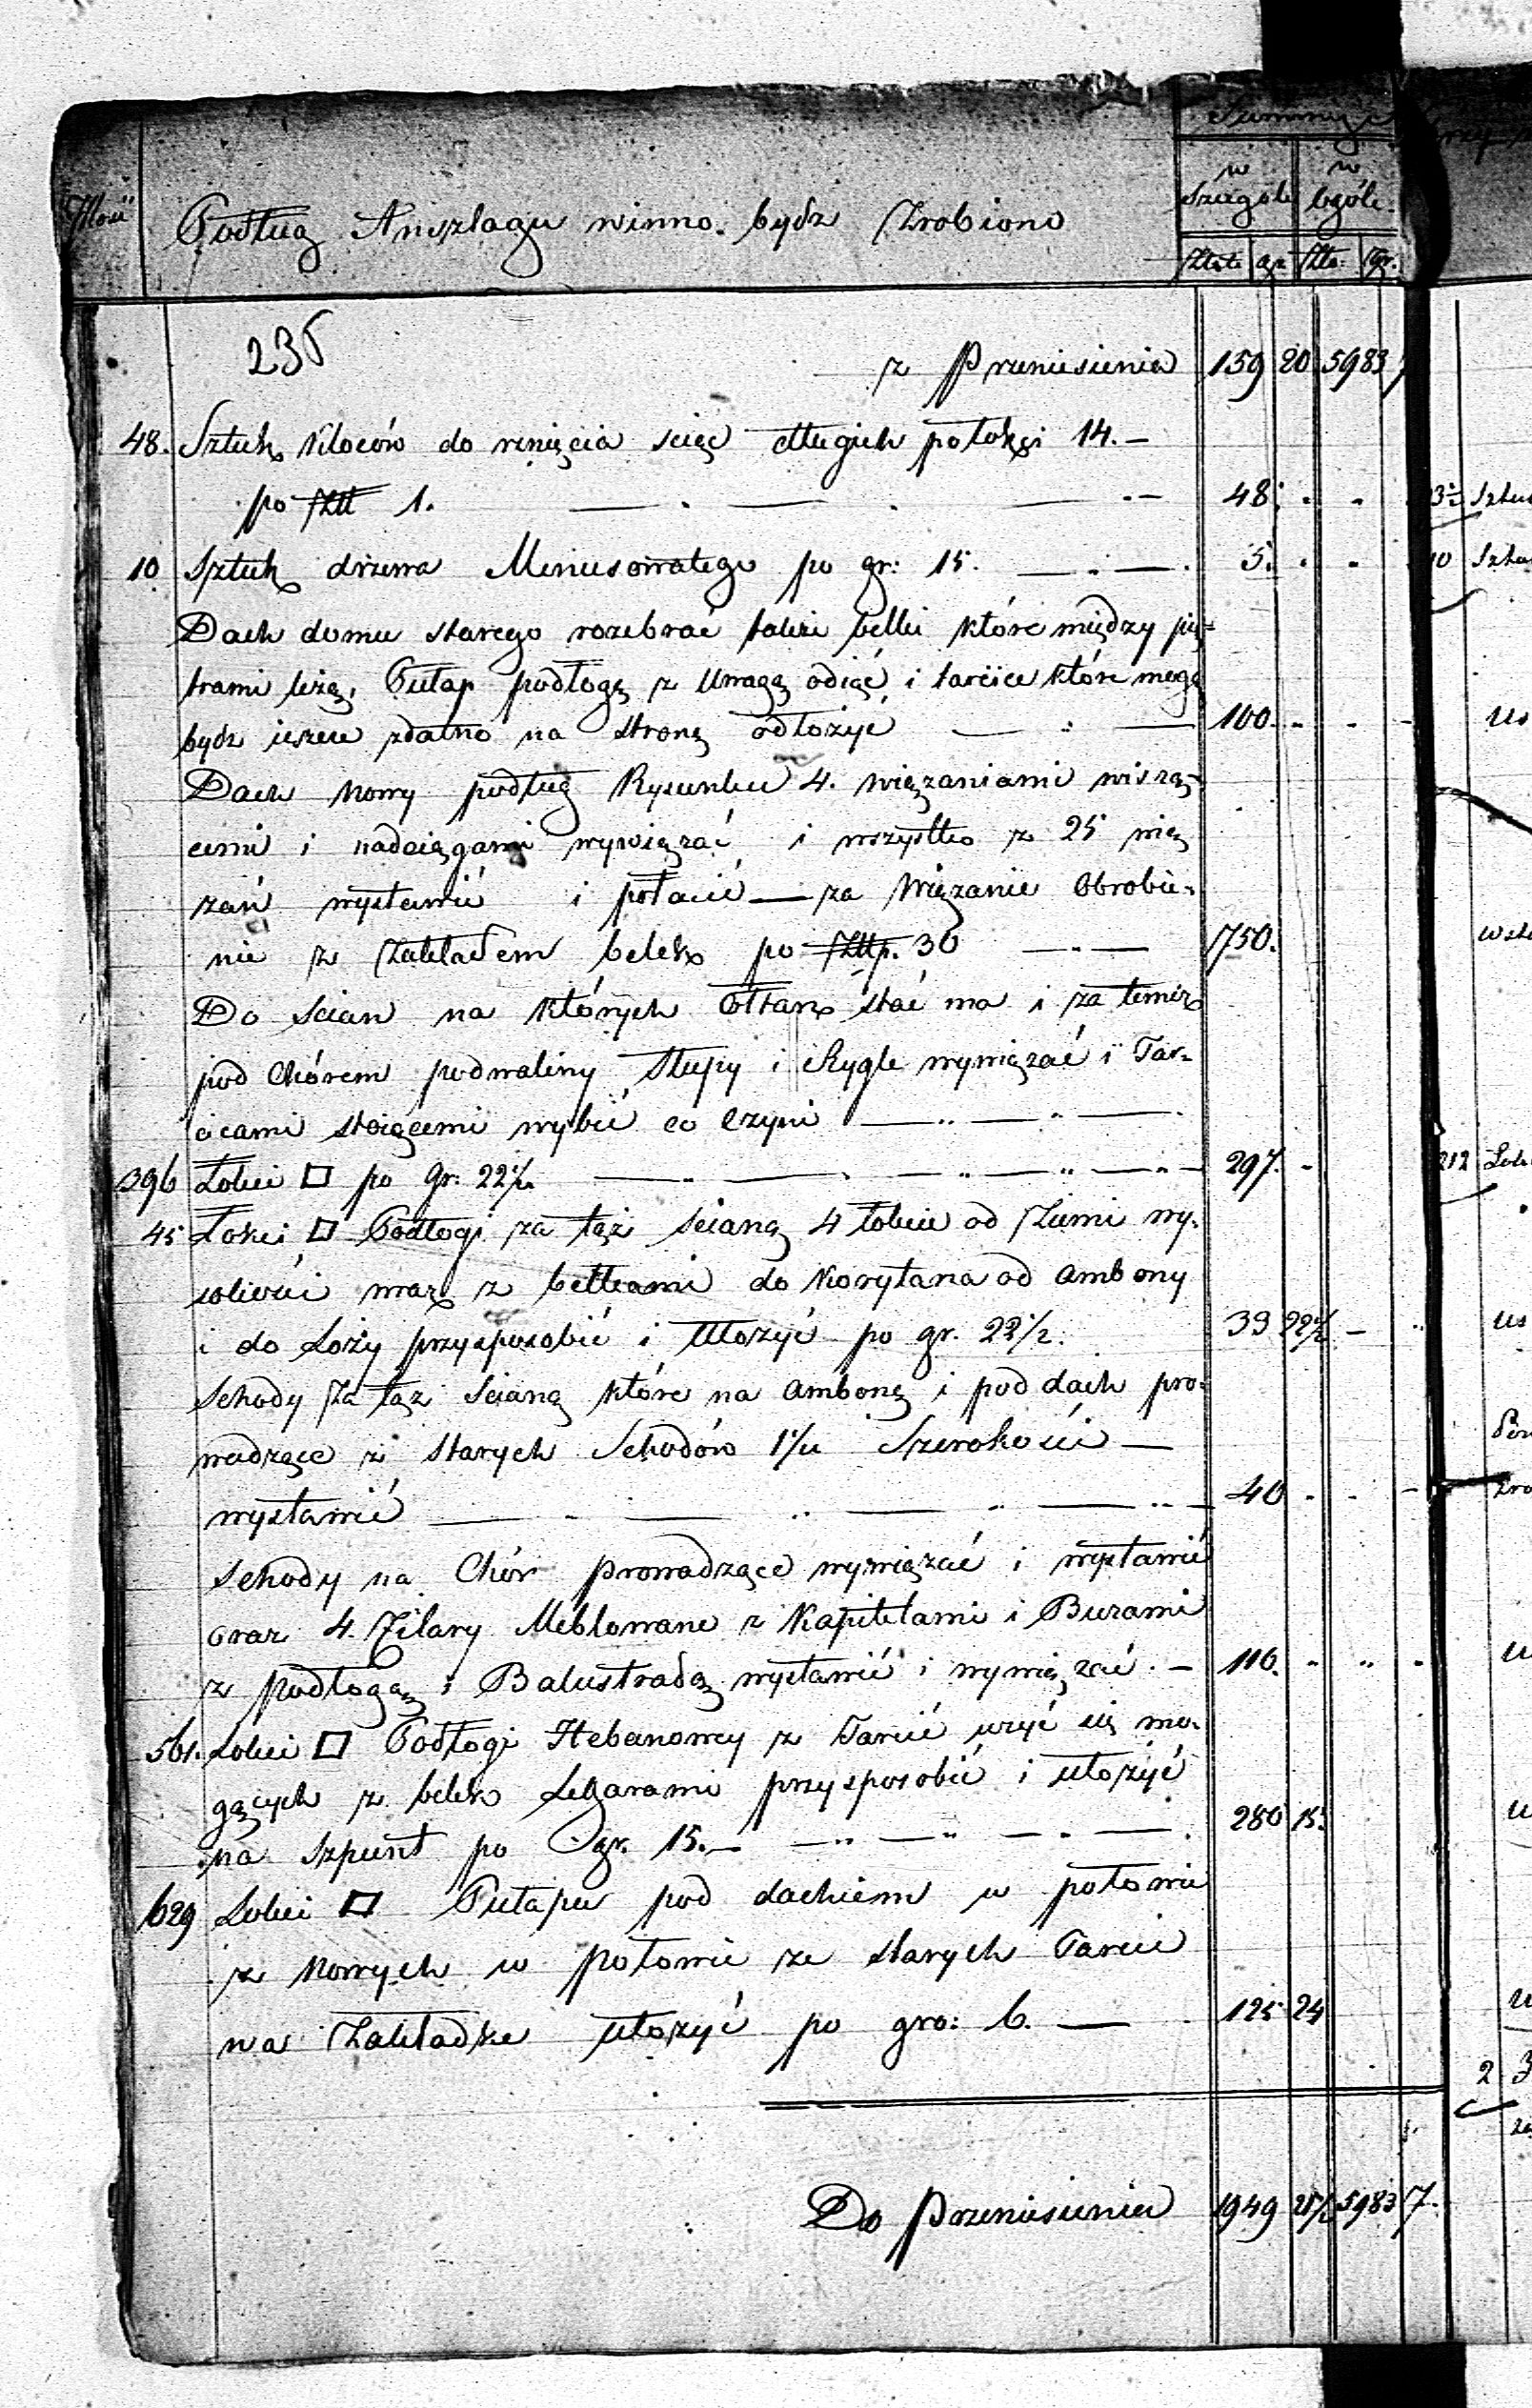 Summa
w Szczególe | w ogóle
Ilość | Podług Anszlagu winno bydz Zrobiono | Złote | gr | Złto: | Gr.
236
z Przeniesienia 159 20 5983 7
48. Sztuk Kloców do rznięcia sciąć długich po łokci 14. —
po Złł 1. — 48. " "
10 Sztuk drzewa po gr: 15. — 5. " "
Dach domu starego rozebrać także belki które między pię=
trami leżą, Pułap podłogę z Uwagą odiąć i tarcice które mogą
bydz ieszcze zdatno na stronę odłożyć — 100. - - -
Dach Nowy podług Rysunku 4. wiązaniami wiszą=
cemi i nadciągami wywiązać i wszystko z 25 wią
zań wystawić i połacić — za Wiązanie Obrobie=
nie z Zakładem belek po Złłp. 30 — 750.
Do Scian na których Ołtarz stać ma i za temiż
pod Chórem podwaliny Słupy i Rygle wywiązać i Tar=
cicami stoiącemi wybić co Czyni —
396 Łokci □ po gr. 22½ — 297. -
45 Łokci □ Podłogi za tąż Scianą 4 łokcie od Ziemi wy=
sokości wraz z belkami do Korytarza od Ambony
i do Loży przysposobić i Ułożyć po gr. 22½. 33 22½ - "
Schody Za tąż Scianą które na Ambonę i pod dach pro=
wadzące z Starych Schodów Szerokości —
wystawić — 40 - - -
Schody na Chór prowadzące wywiązać i wystawić
oraz 4. Filary Meblowane z Kapitelami i Bazami
z podłogą i Balustradą wystawić i wywiązać. — 110. " " "
561. Łokci □ Podłogi Heblowanej z Tarcić użyć się mo=
gących z belek Legarami przysposobić i ułożyć
na Szpunt po gr. 15. — 280 15.
629 Łokci □ Pułapu pod dachem w połowie
z Nowych w połowie ze starych Tarcic
na Zakładkę ułożyć po gro: 6. — 125 24
Do przeniesienia 1949 21½ 5983 7.